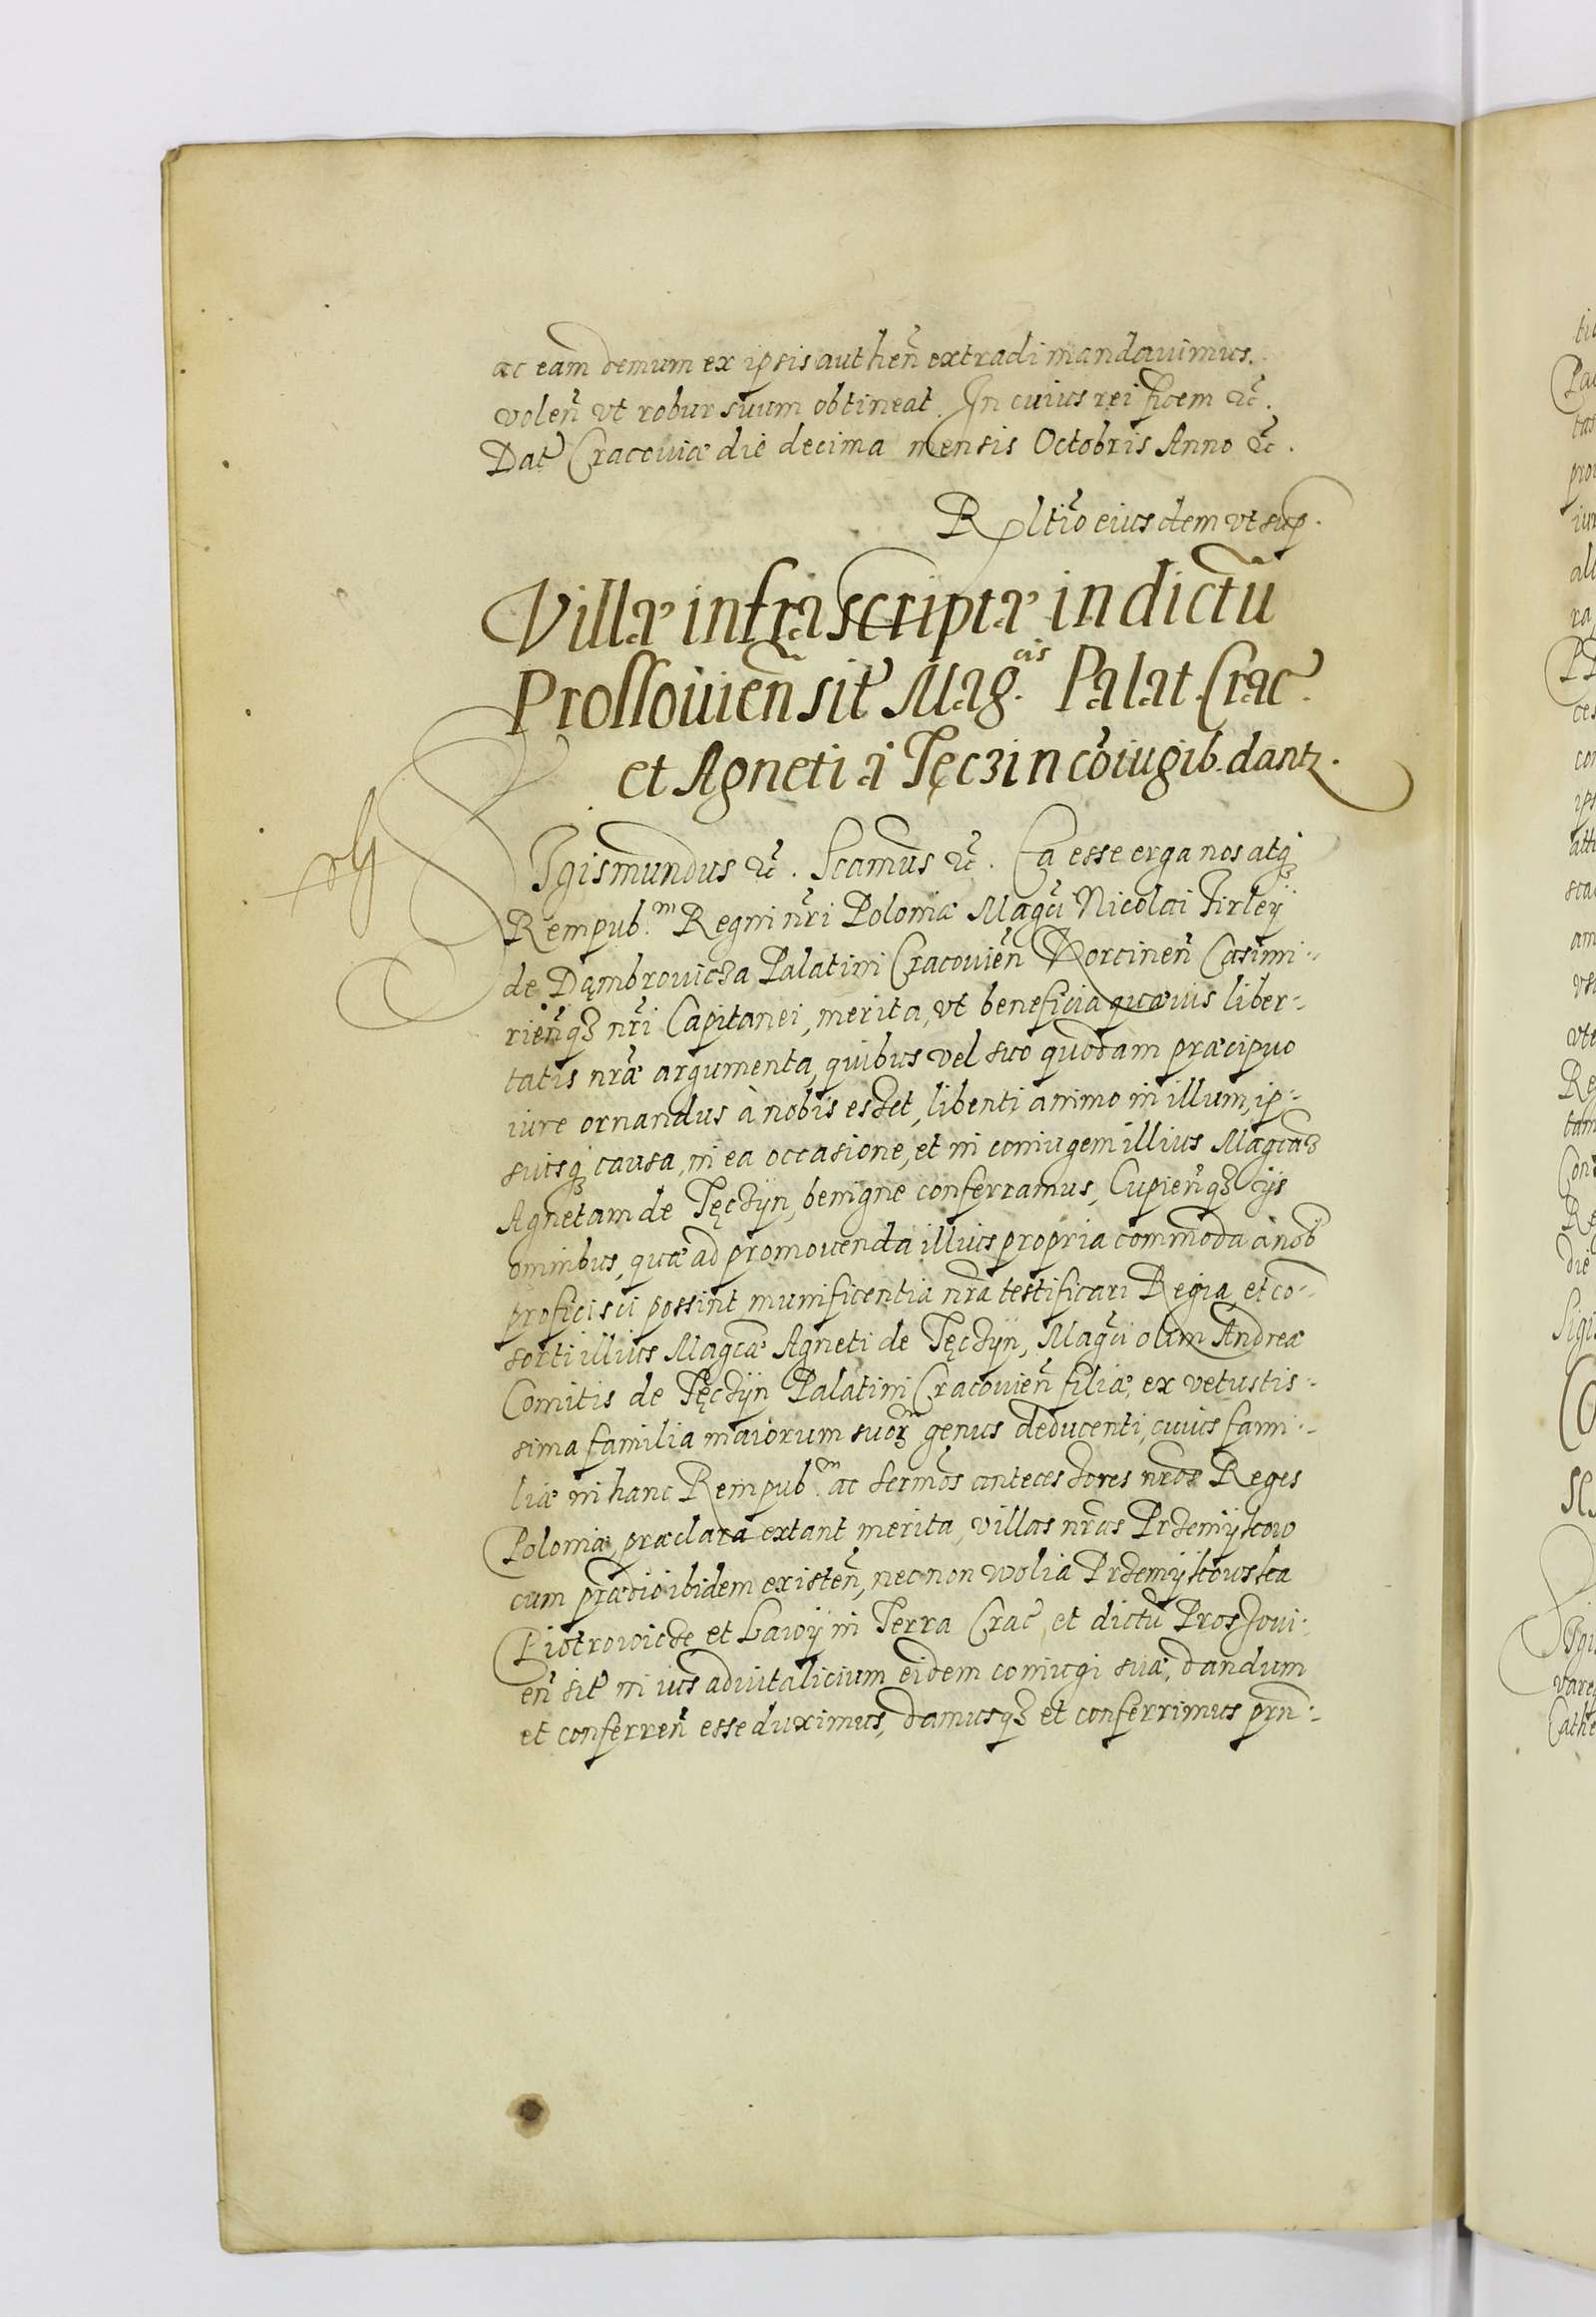 ac eam demum ex ipsis authen̄ extradi mandauimus.
volen̄ vt robur suum obtineat. In cuius rei fidem &c̄.
Dat̄ Cracouiæ die decima mensis Octobris Anno &c̄.
Rltīo eiusdem vt sup.
Villæ infra scriptæ in dictū
Prossouien̄ sit̄ Mag.cis Palat. Crac̄.
et Agneti à Tęczin cōiugib. dantz.
SIgismundus &c̄. Scamus &c̄. Ea esse erga nos atq
Rempub.m Regni nr̄i Poloniæ Magc̄i Nicolai Firleÿ
de Dąmbrouicza Palatini Cracouien̄ Korcinen̄ Casimi-
rien̄qz nr̄i Capitanei, merita, vt beneficia quæuis liber-
tatis nrǣ argumenta, quibus vel suo quodam præcipuo
iure ornandus à nobis esset, libenti animo in illum, ip-
suisq causa, in ea occasione, et in coniugem illius Magcaz
Agnetam de Tęczÿn, benigne conferramus, Cupien̄qz ijs
omnibus, quæ ad promouenda illius propria commoda à nob
proficisci possint, munificentia nrā testificari Regia, et co-
sorti illius Magcæ Agneti de Tęczÿn, Magc̄i olim Andreæ
Comitis de Tęczÿn Palatini Cracouien̄ filiæ, ex vetustis-
sima familia maiorum suor genus deducenti, cuius fami-
liæ in hanc Rempub.m ac sermōs antecessores nrōs Reges
Poloniæ, præclara extant merita, villas nrās Przemÿkow
cum prædio ibidem existen̄, nec non wolia Przemÿkowska
Piotrowicze et Ławÿ in Terra Crac̄, et dictū Prossoui-
en̄ sit̄ in ius aduitalicium eidem coniugi suæ, dandum
et conferren̄ esse duximus, damusqz et conferrimus prn̄-